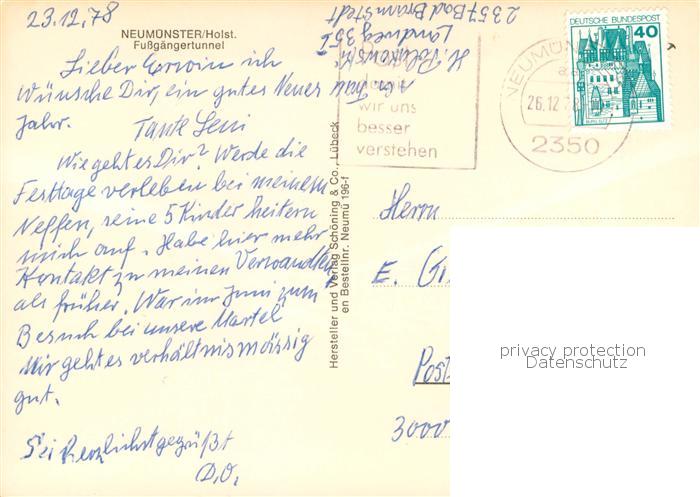 23.12.78
NEUMÜNSTER/Holst.
Fußgängertunnel
Lieber Erwin ich
wünsche Dir, ein gutes Neues
Jahr. Tante Leni
Wie geht es Dir? Werde die
Festtage verleben bei meinem
Neffen, seine 5 Kinder heitern
mich auf. Habe hier mehr
Kontakt zu meinen Verwandten
als früher. War im Juni zum
Besuch bei unsere Martel
Mir geht es verhältnismässig
gut.
Sei herzlichst gegrüßt
D.O.
Hersteller und Verlag Schöning & Co., Lübeck
en Bestellnr. Neumü 196-f
Abs. Frau
Landweg 35
2357 Bad Bramstedt
damit
wir uns
besser
verstehen
DEUTSCHE BUNDESPOST
40
NEUMÜN
26.12.7
2350
Herrn
E. G
Post
3000
privacy protection
Datenschutz